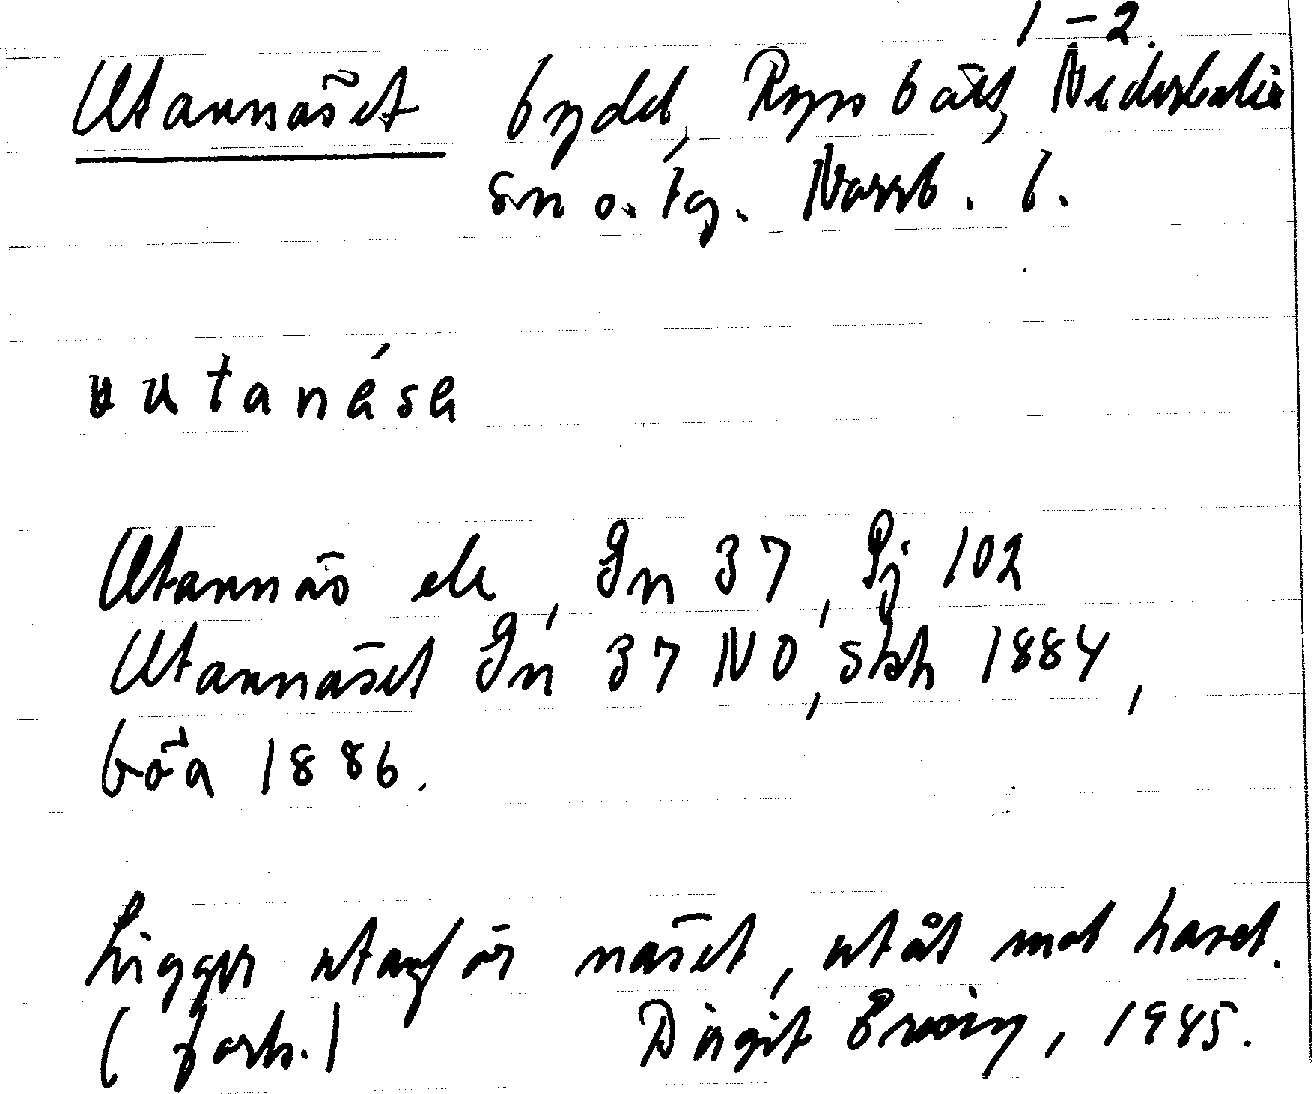 1-2.
Utannäset bydel, Ryssbält, Nederkalix
sn o. tg. Norrb. l.
Utannäs ek, Gn 37, Pj 102
Utannäset Gn 37 NO, skh 1884,
1886.
Ligger utanför näset, utåt mot havet.
(forts.) Birgit 1985.